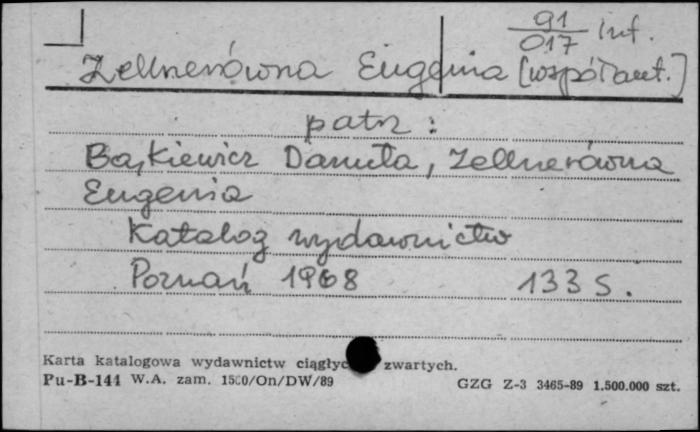 91
017 inf.
Zellnerówna Eugenia [współaut.]
patrz:
Bajkiewicz Danuta, Zellnerówna
Eugenia
Katalog wydawnictw
Poznań 1968 133 s.
Karta katalogowa wydawnictw ciągłyc zwartych.
Pu-B-144 W.A. zam. 1500/On/DW/89 GZG Z-3 3465-89 1.500.000 szt.